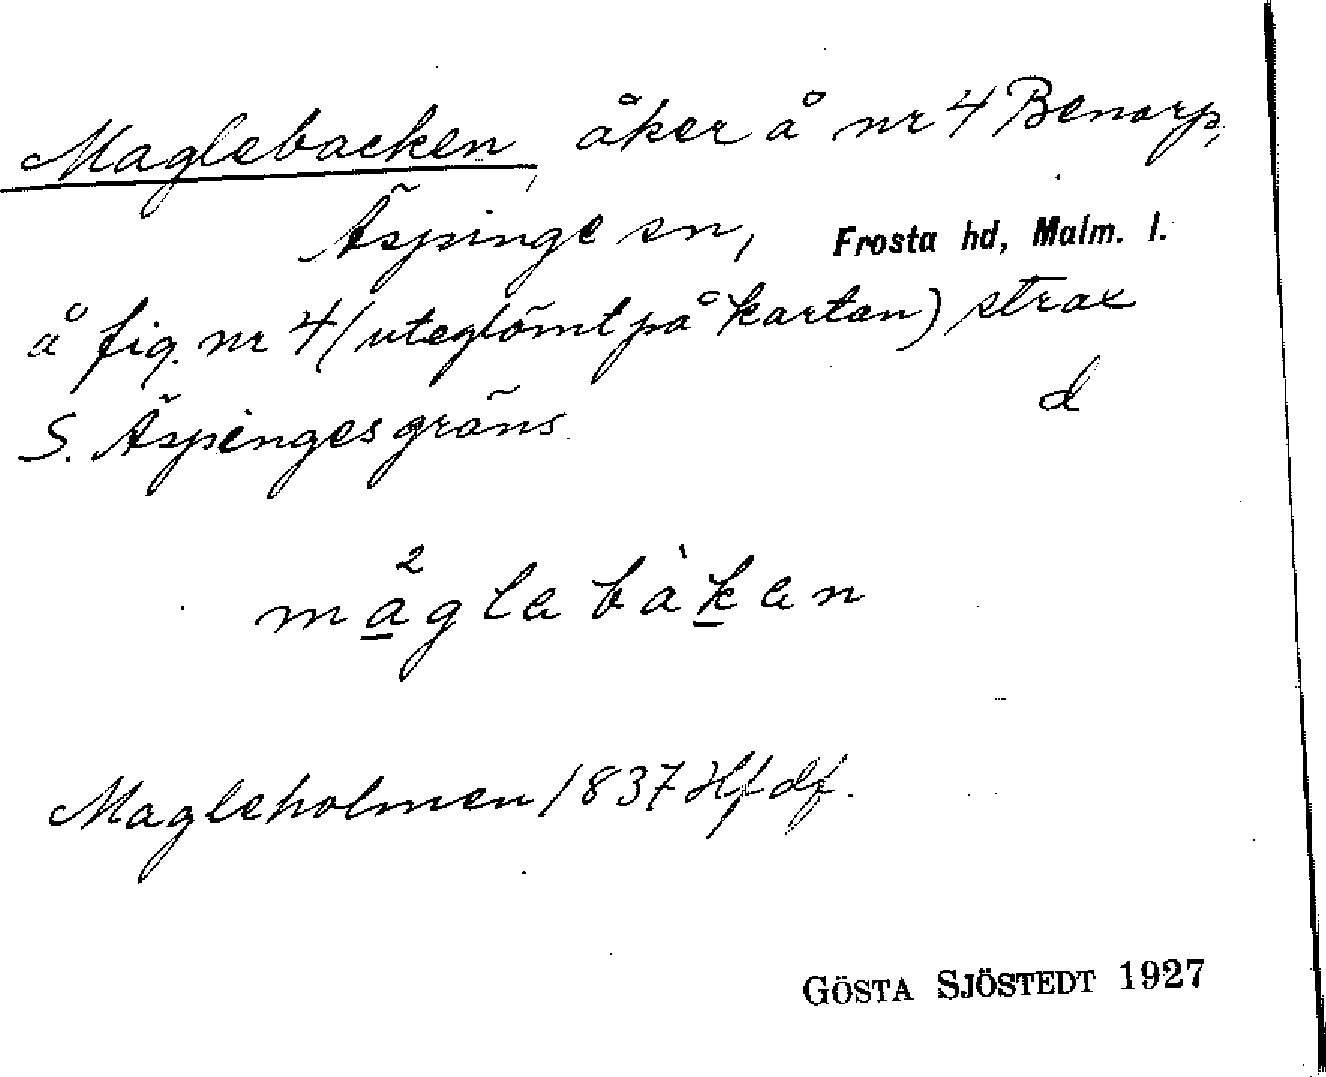 Maglebacken, åker å nr 4 Benarp,
Äspinge sn, Frosta hd, Malm. l.
å fig. nr 4 (uteglömt på kartan) strax
S. Äspinges gräns d
magla bàkan
Magleholmen 1837 Hfdf.
GÖSTA SJÖSTEDT 1927